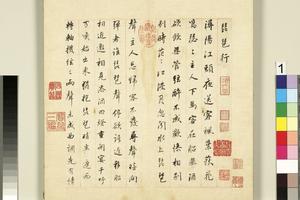 琵琶行
潯陽江頭夜送客楓葉荻花
主人下馬客在船舉酒
欲飲無管絃醉不成歡慘相別
別時茫〻江浸月忽聞水上琵琶
聲主人忘歸客不發尋聲暗問
彈者誰琵琶聲停欲語遲移船
相近邀相見添酒回燈重開宴千呼
萬喚始出來猶抱琵琶半遮面
轉軸撥絃三兩聲未成曲調先有情
1